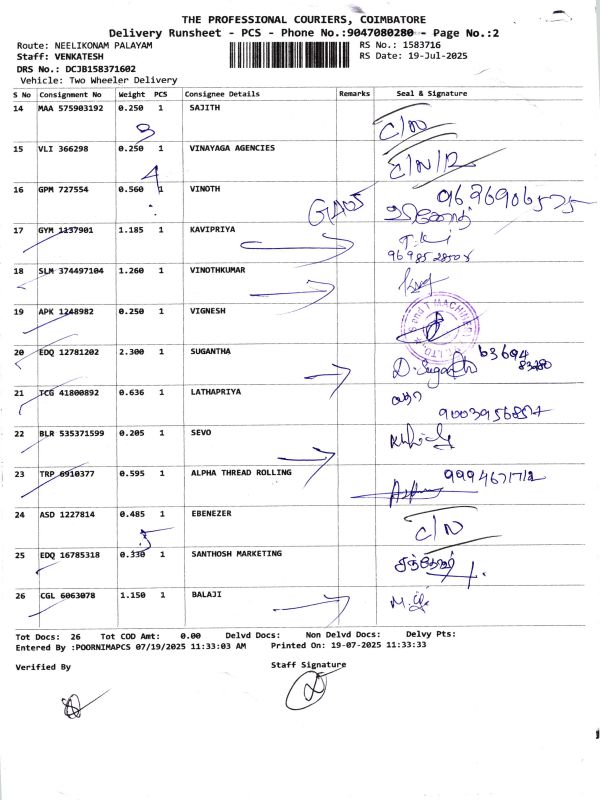 THE PROFESSIONAL COURIERS, COIMBATORE
Delivery Runsheet - PCS - Phone No.:9047080280 - Page No.:2
Route: NEELIKONAM PALAYAM
RS No.: 1583716
Staff: VENKATESH
RS Date: 19-Jul-2025
DRS No.: DCJB158371602
Vehicle: Two Wheeler Delivery
S No Consignment No Weight PCS Consignee Details Remarks Seal & Signature
14 MAA 575903192 0.250 1 SAJITH
3
C/N
15 VLI 366298 0.250 1 VINAYAGA AGENCIES
4
C/N/R
16 GPM 727554 0.560 1 VINOTH
9696906575
17 GYM 1137901 1.185 1 KAVIPRIYA
18 SLM 374497104 1.260 1 VINOTHKUMAR
19 APK 1248982 0.250 1 VIGNESH
20 EDQ 12781202 2.300 1 SUGANTHA
63694
83280
D. Sugantha
21 TCG 41800892 0.636 1 LATHAPRIYA
லதா
22 BLR 535371599 0.205 1 SEVO
23 TRP 6910377 0.595 1 ALPHA THREAD ROLLING
9994671712
24 ASD 1227814 0.485 1 EBENEZER
5
C/N
25 EDQ 16785318 0.330 1 SANTHOSH MARKETING
26 CGL 6063078 1.150 1 BALAJI
Tot Docs: 26 Tot COD Amt: 0.00 Delvd Docs: Non Delvd Docs: Delvy Pts:
Entered By :POORNIMAPCS 07/19/2025 11:33:03 AM Printed On: 19-07-2025 11:33:33
Verified By
Staff Signature